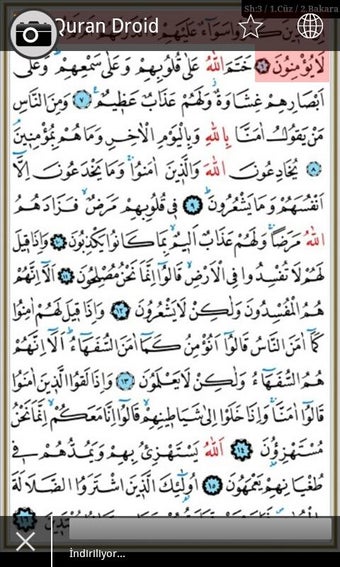 Sh:3 / 1.Cüz / 2.Bakara
Quran Droid
لَا يُؤْمِنُونَ ﴿٦﴾ خَتَمَ اللّٰهُ عَلٰى قُلُوبِهِمْ وَعَلٰى سَمْعِهِمْ وَعَلٰٓى
اَبْصَارِهِمْ غِشَاوَةٌ وَلَهُمْ عَذَابٌ عَظِيمٌ ﴿٧﴾ وَمِنَ النَّاسِ
مَنْ يَقُولُ اٰمَنَّا بِاللّٰهِ وَبِالْيَوْمِ الْاٰخِرِ وَمَا هُمْ بِمُؤْمِنِينَ
﴿٨﴾ يُخَادِعُونَ اللّٰهَ وَالَّذِينَ اٰمَنُوا وَمَا يَخْدَعُونَ اِلَّٓا
اَنْفُسَهُمْ وَمَا يَشْعُرُونَ ﴿٩﴾ فِي قُلُوبِهِمْ مَرَضٌ فَزَادَهُمُ
اللّٰهُ مَرَضًا وَلَهُمْ عَذَابٌ اَلِيمٌ بِمَا كَانُوا يَكْذِبُونَ ﴿١٠﴾ وَاِذَا قِيلَ
لَهُمْ لَا تُفْسِدُوا فِي الْاَرْضِ قَالُٓوا اِنَّمَا نَحْنُ مُصْلِحُونَ ﴿١١﴾ اَلَٓا اِنَّهُمْ
هُمُ الْمُفْسِدُونَ وَلٰكِنْ لَا يَشْعُرُونَ ﴿١٢﴾ وَاِذَا قِيلَ لَهُمْ اٰمِنُوا
كَمَٓا اٰمَنَ النَّاسُ قَالُٓوا اَنُؤْمِنُ كَمَٓا اٰمَنَ السُّفَهَٓاءُ اَلَٓا اِنَّهُمْ
هُمُ السُّفَهَٓاءُ وَلٰكِنْ لَا يَعْلَمُونَ ﴿١٣﴾ وَاِذَا لَقُوا الَّذِينَ اٰمَنُوا
قَالُٓوا اٰمَنَّا وَاِذَا خَلَوْا اِلٰى شَيَاطِينِهِمْ قَالُٓوا اِنَّا مَعَكُمْ اِنَّمَا نَحْنُ
مُسْتَهْزِؤُنَ ﴿١٤﴾ اَللّٰهُ يَسْتَهْزِئُ بِهِمْ وَيَمُدُّهُمْ فِي
طُغْيَانِهِمْ يَعْمَهُونَ ﴿١٥﴾ اُولٰٓئِكَ الَّذِينَ اشْتَرَوُا الضَّلَالَةَ
İndiriliyor...